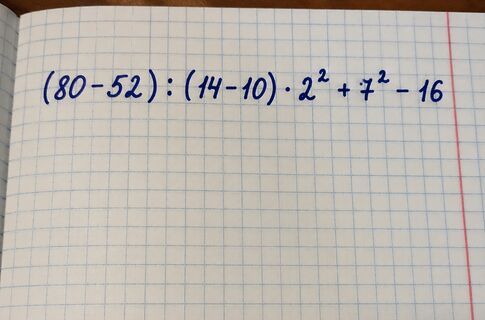 (80-52):(14-10)·2²+7²-16